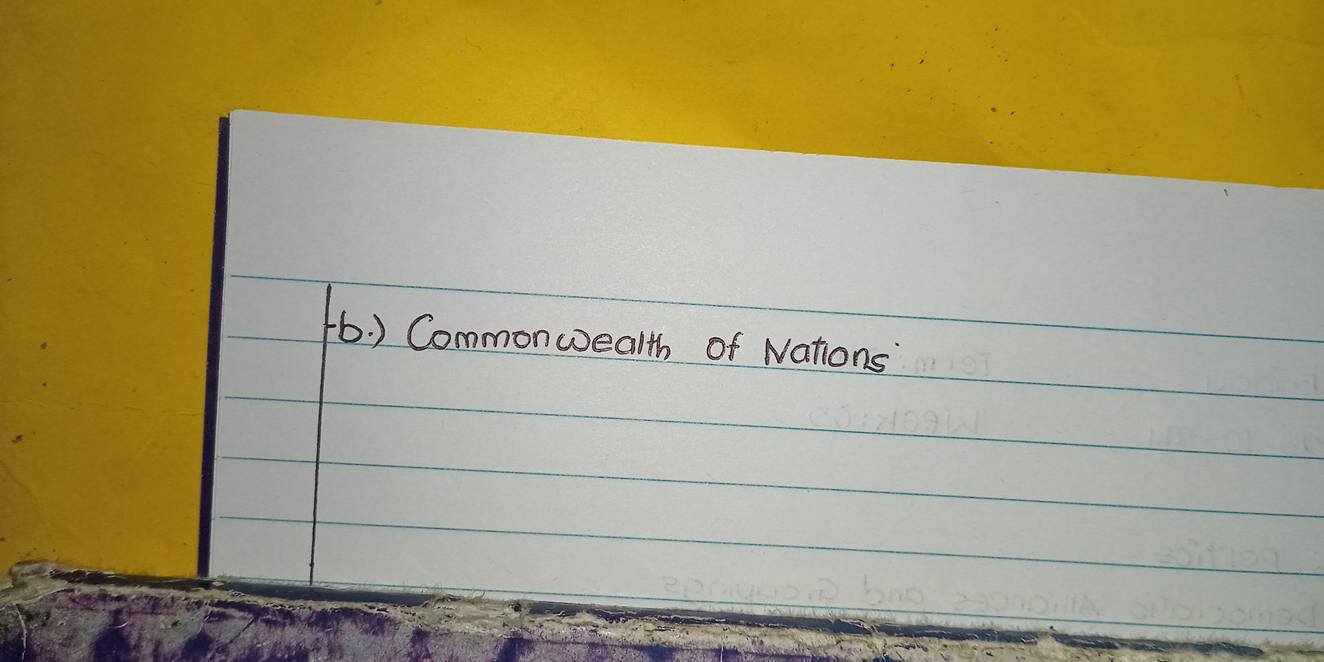 b.) Commonwealth of Nations